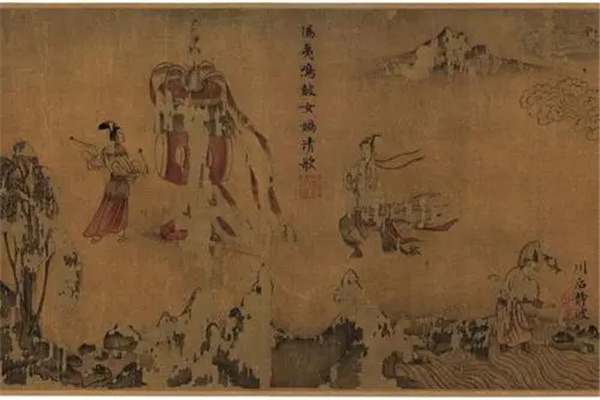 川后靜波
馮夷鳴鼓女媧清歌